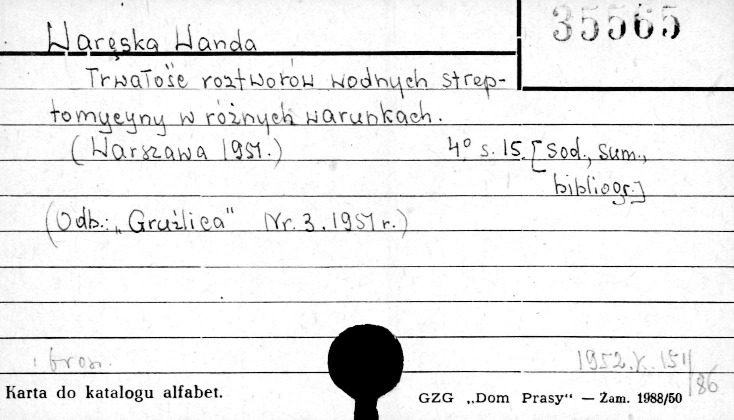 35565
Waręska Wanda
Trwałość roztworów wodnych strep-
tomycyny w różnych warunkach.
(Warszawa 1951.) 4° s. 15. [Sod., sum.,
bibliogr.]
(Odb.: „Gruźlica" Nr. 3. 1951 r.)
1952.K.151/86
Karta do katalogu alfabet.
GZG „Dom Prasy" — Zam. 1988/50